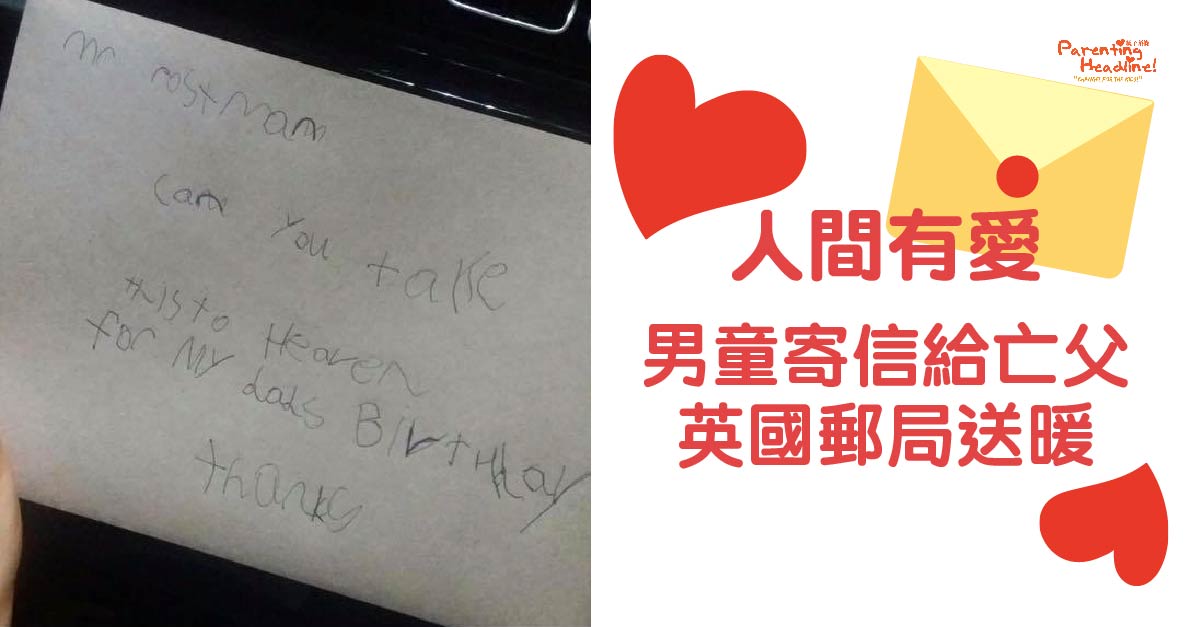 mr Postman
Can you take
this to Heaven
for my dads Birthday
thanks
Parenting
Headline!
人間有愛
男童寄信給亡父
英國郵局送暖